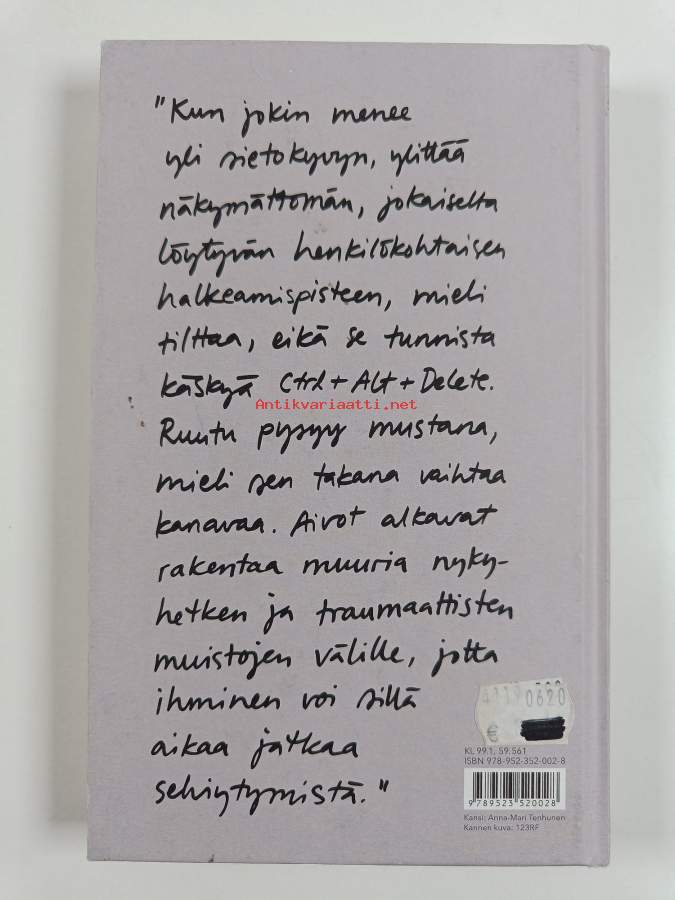 "Kun jokin menee
yli sietokyvyn, ylittää
näkymättömän, jokaiselta
löytyvän henkilökohtaisen
halkeamispisteen, mieli
tilttaa, eikä se tunnista
käskyä Ctrl+Alt+Delete.
Antikvariaatti.net
Ruutu pysyy mustana,
mieli sen takana vaihtaa
kanavaa. Aivot alkavat
rakentaa muuria nyky-
hetken ja traumaattisten
muistojen välille, jotta
ihminen voi sillä
aikaa jatkaa
selviytymistä."
0620
€
KL 99.1, 59.561
ISBN 978-952-352-002-8
9789523520028
Kansi: Anna-Mari Tenhunen
Kannen kuva: 123RF